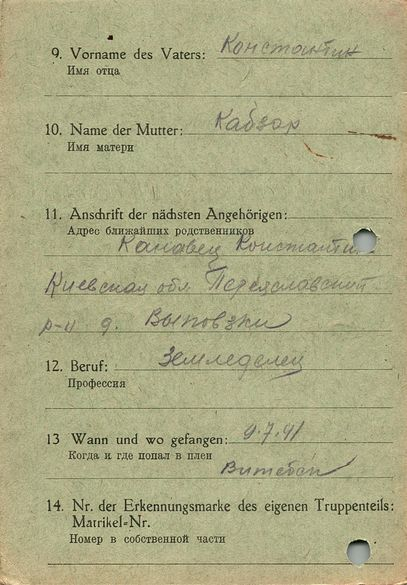 9. Vorname des Vaters: Константин
Имя отца
10. Name der Mutter: Кабзор
Имя матери
11. Anschrift der nächsten Angehörigen:
Адрес ближайших родственников
Канавец Константин
Киевская обл Переяславский
р-н д. Выповзки
12. Beruf: Земледелец
Профессия
13 Wann und wo gefangen: 9.7.41
Когда и где попал в плен
Витебск
14. Nr. der Erkennungsmarke des eigenen Truppenteils:
Matrikel-Nr.
Номер в собственной части